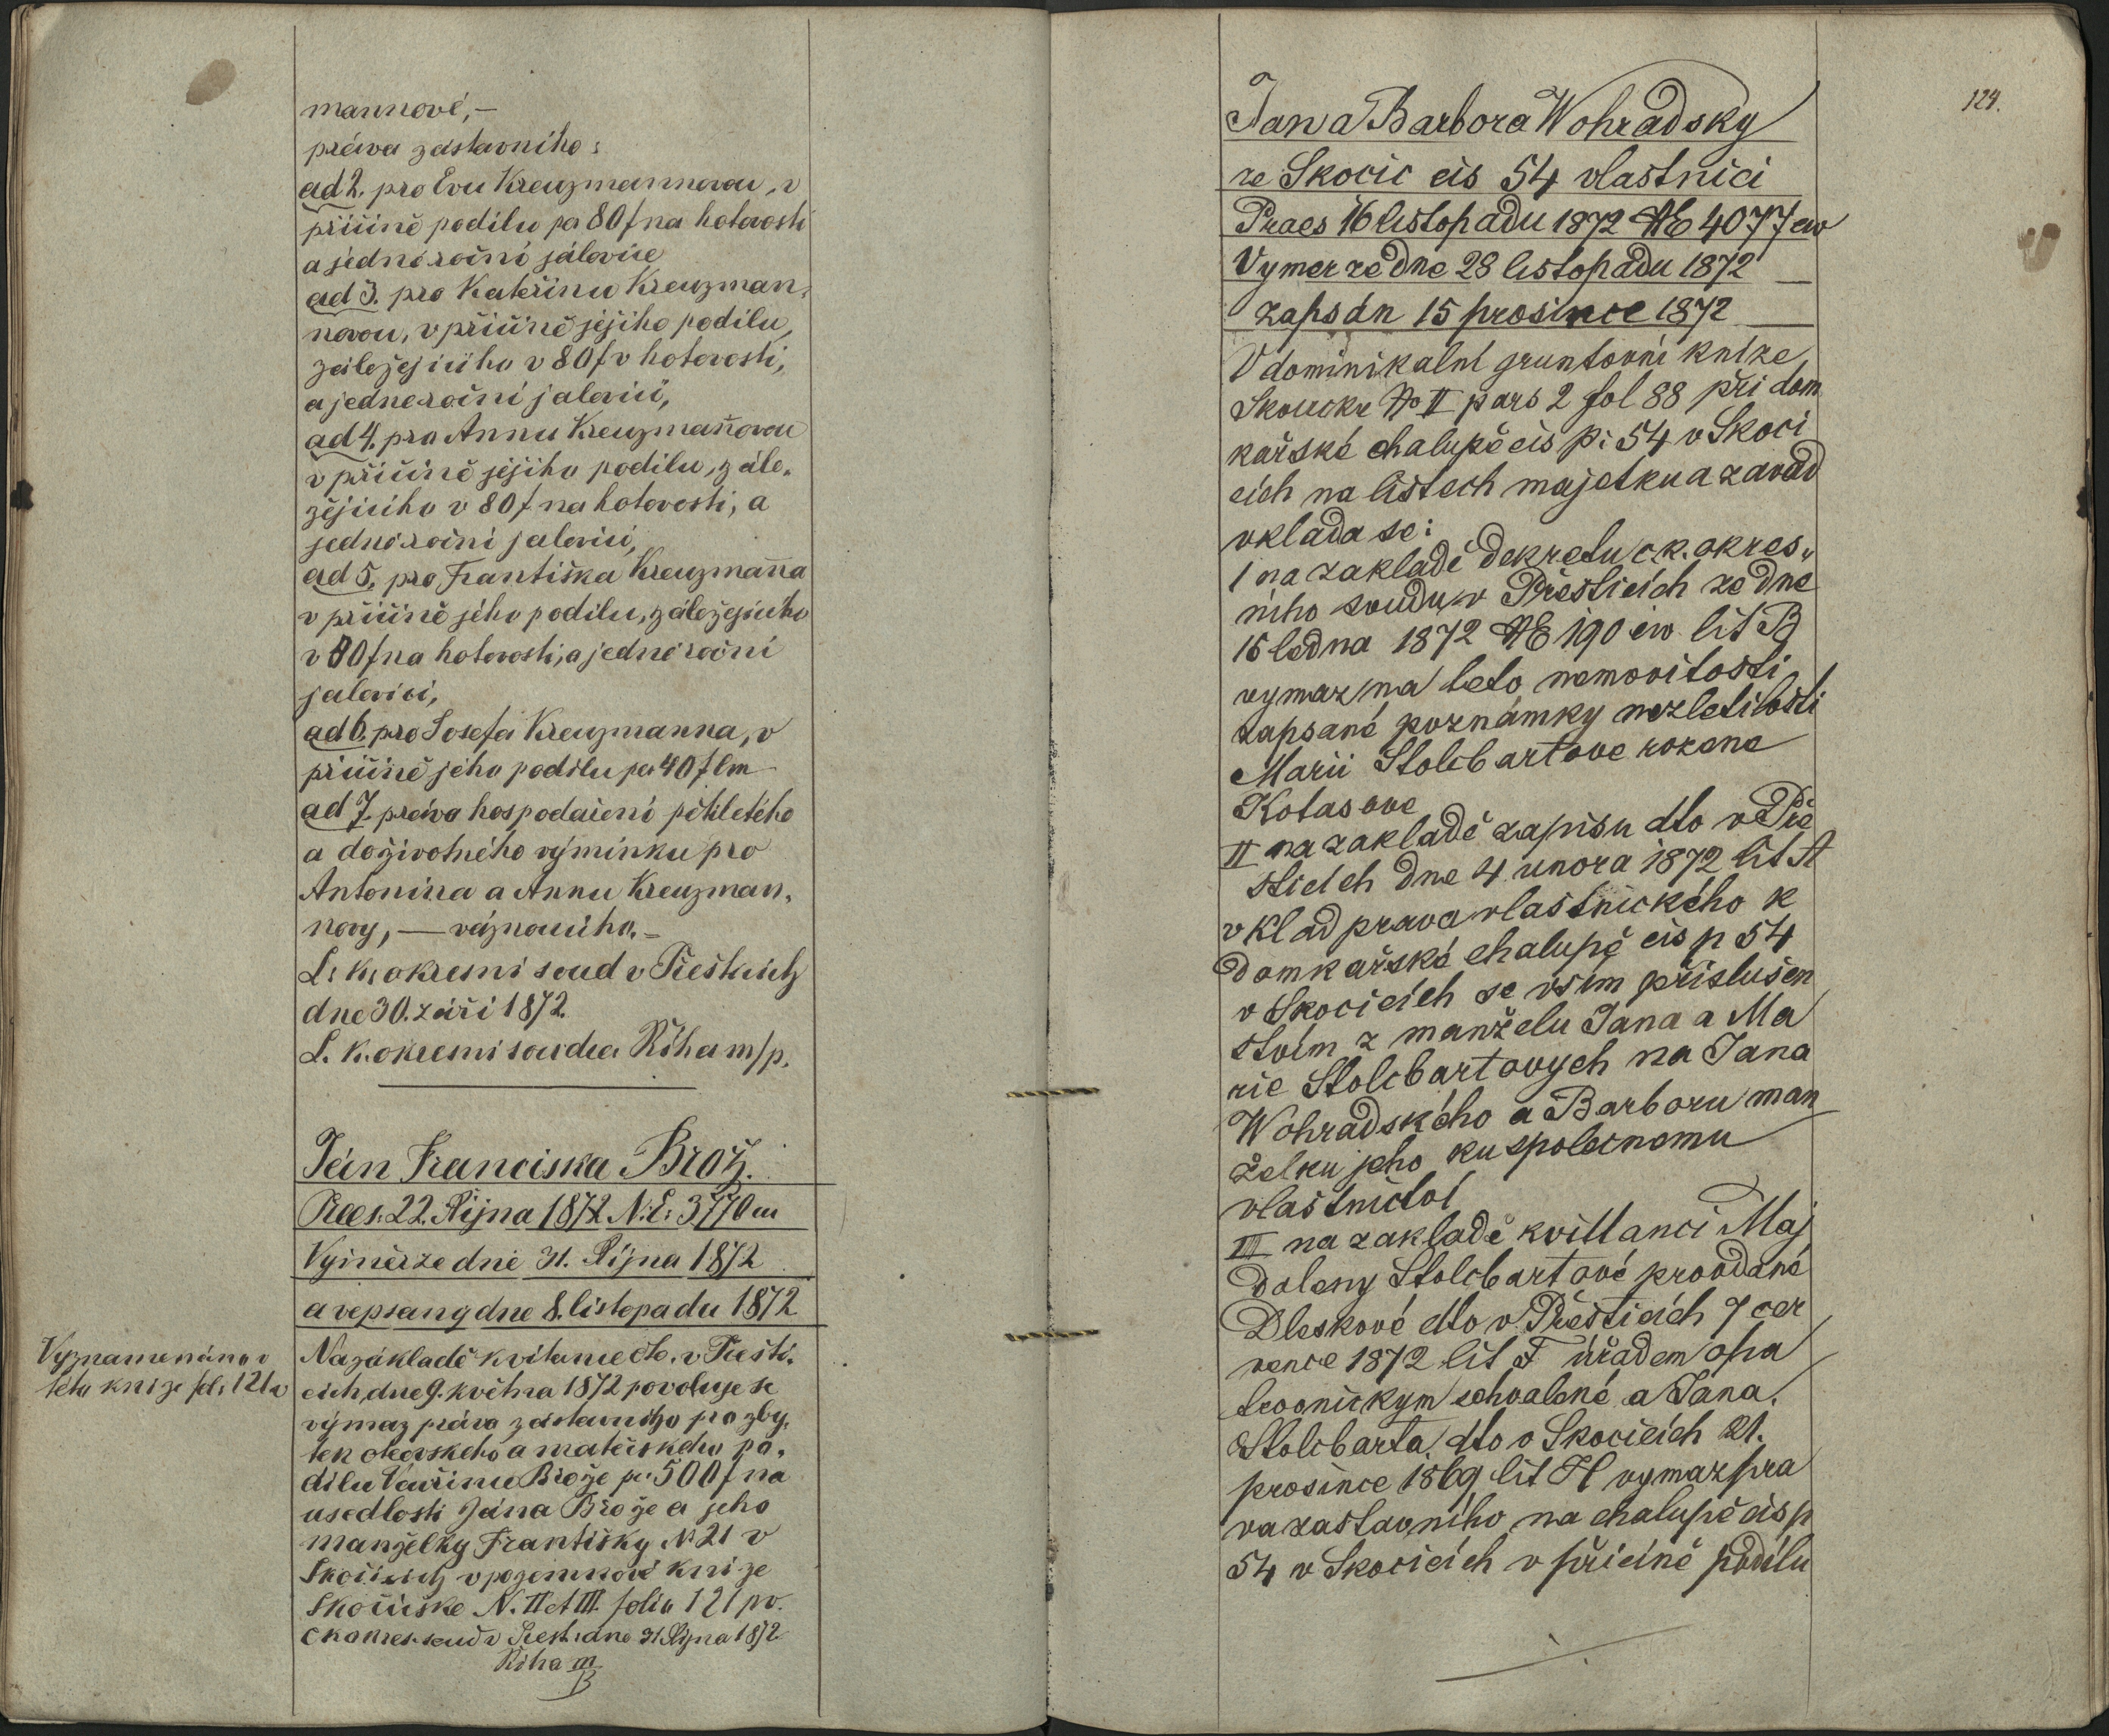 mannové,—
práva zástavního:
ad 2. pro Evu Kreuzmannovou, v
příčině podílu pr 80 f na hotovosti
a jednéroční jálovice
ad 3. pro Kateřinu Kreuzman-
novou, v příčině jejího podílu,
záležejícího v 80 f v hotovosti,
a jednéroční jalovici,
ad 4. pro Annu Kreuzman̄ovou
v příčině jejího podílu, zále-
žějícího v 80 f na hotovosti, a
jednéroční jalovici,
ad 5. pro Františka Kreuzman̄a
v příčině jeho podílu, záležejícího
v 80 f na hotovosti, a jednéroční
jalovici,
ad 6. pro Josefa Kreuzmanna, v
příčině jeho podílu per 40 f lm
ad 7. práva hospodaření pětiletého
a doživotného výminku pro
Antonína a Annu Kreuzman-
novy,— váznoucího.—
C. k. okresní soud v Přešticích
dne 30. září 1872.
C. k. okresní soudce Říha m/p.
Ján Franciska Brož.
Praes. 22. Října 1872 N. E. 3770 civ
Výměr ze dne 31. Října 1872
a vepsaný dne 8. listopadu 1872
Vyznamenáno v
této knize fol. 121 v
Na základě kvitance dto. v Přešti-
cích, dne 9. května 1872 povoluje se
výmaz práva zástavního pro zby-
tek otcovského a mateřského po-
dílu Vavřince Brože pr. 500 f na
usedlosti Jána Brože a jeho
manželky Františky N 21 v
Skočicích v pozemkové knize
Skočické N. II et III. folio 121 pv.
C k okres. soud v Přešt. dne 31. Října 1872
Říha m/p
124.
Jan a Barbora Wohradsky
ze Skocic cis 54 vlastnici
Praes 16 listopadu 1872 NE 4077 civ
Vymer ze dne 28 listopadu 1872
zapsán 15 prosince 1872
V dominikalní gruntovní knize
Skoucke No II pars 2 fol 88 při dom
kařské chalupě cis p: 54 v Skoci
cich na listech majetku a zavad
vklada se:
I na zakladě dekretu c k. okres-
niho soudu v Přesticich ze dne
15 ledna 1872 NE 190 civ. lit B
vymaz na teto nemovitosti
zapsané poznámky nezletilosti
Marii Stolcbartove rozene
Kotasove
II na zakladě zapisu dto v Pře
sticich dne 4 unora 1872 lit A
vklad prava vlastnického k
domkařské chalupě cis p 54
v Skocicich se vsim přislušen
stvím z manželu Jana a Ma
rie Stolcbartovych na Jana
Wohradského a Barboru man
želku jeho ku spolecnemu
vlastnictví
III na zakladě kvittanci Maj
daleny Stolcbartové provdané
Dleskové dto v Přesticich 7 cer
vence 1872 lit F úřadem opa
trovnickym schvalené a Jana
Stolcbarta dto v Skocicich 21.
prosince 1869 lit H vymaz pra
va zastavního na chalupě cis p
54 v Skocicich v přicině podílu